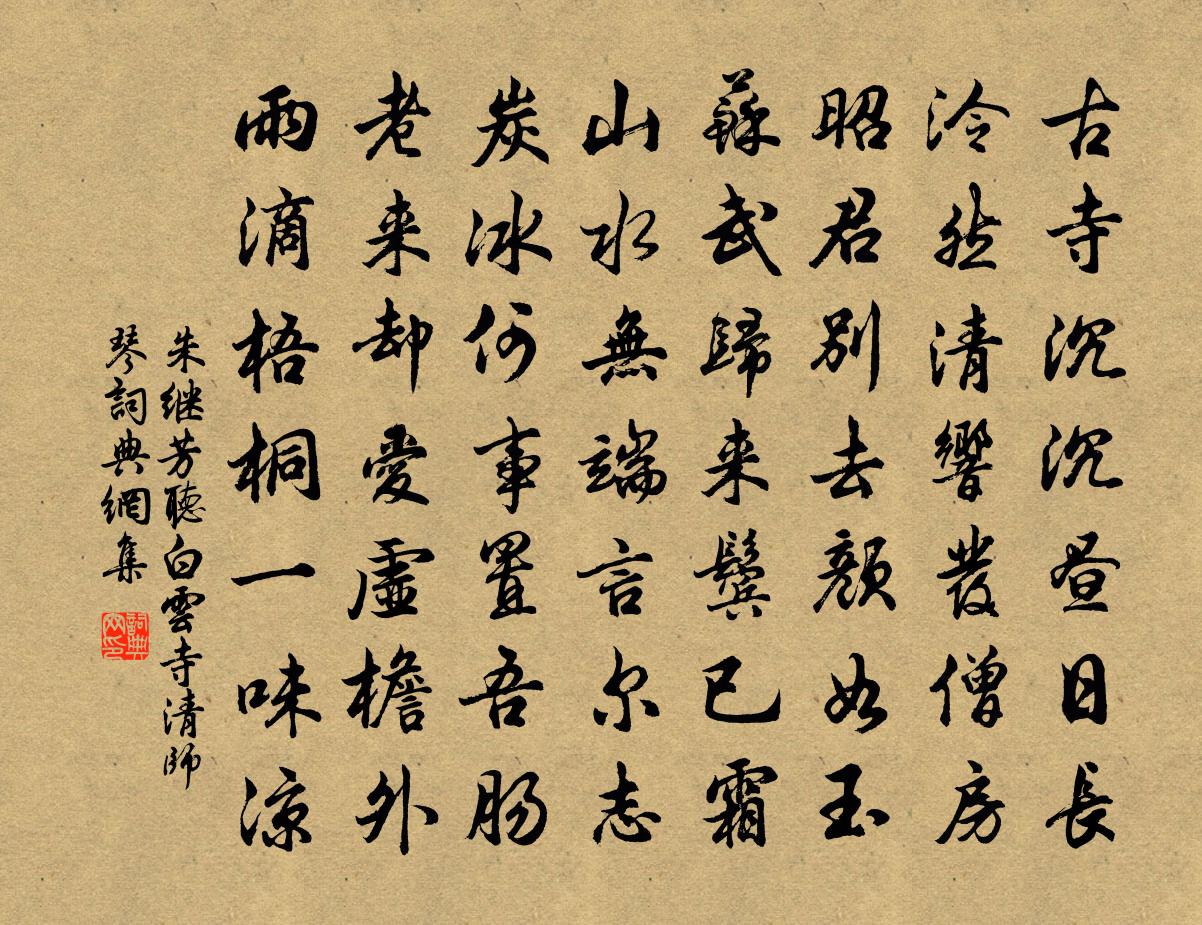 古寺沉沉昼日長
泠然清響發僧房
昭君別去顔如玉
蘇武歸来鬓已霜
山水無端言尔志
炭冰何事置吾肠
老来却愛虛檐外
雨滴梧桐一味凉
朱继芳聽白雲寺清師
琴詞典網集
詞典网印